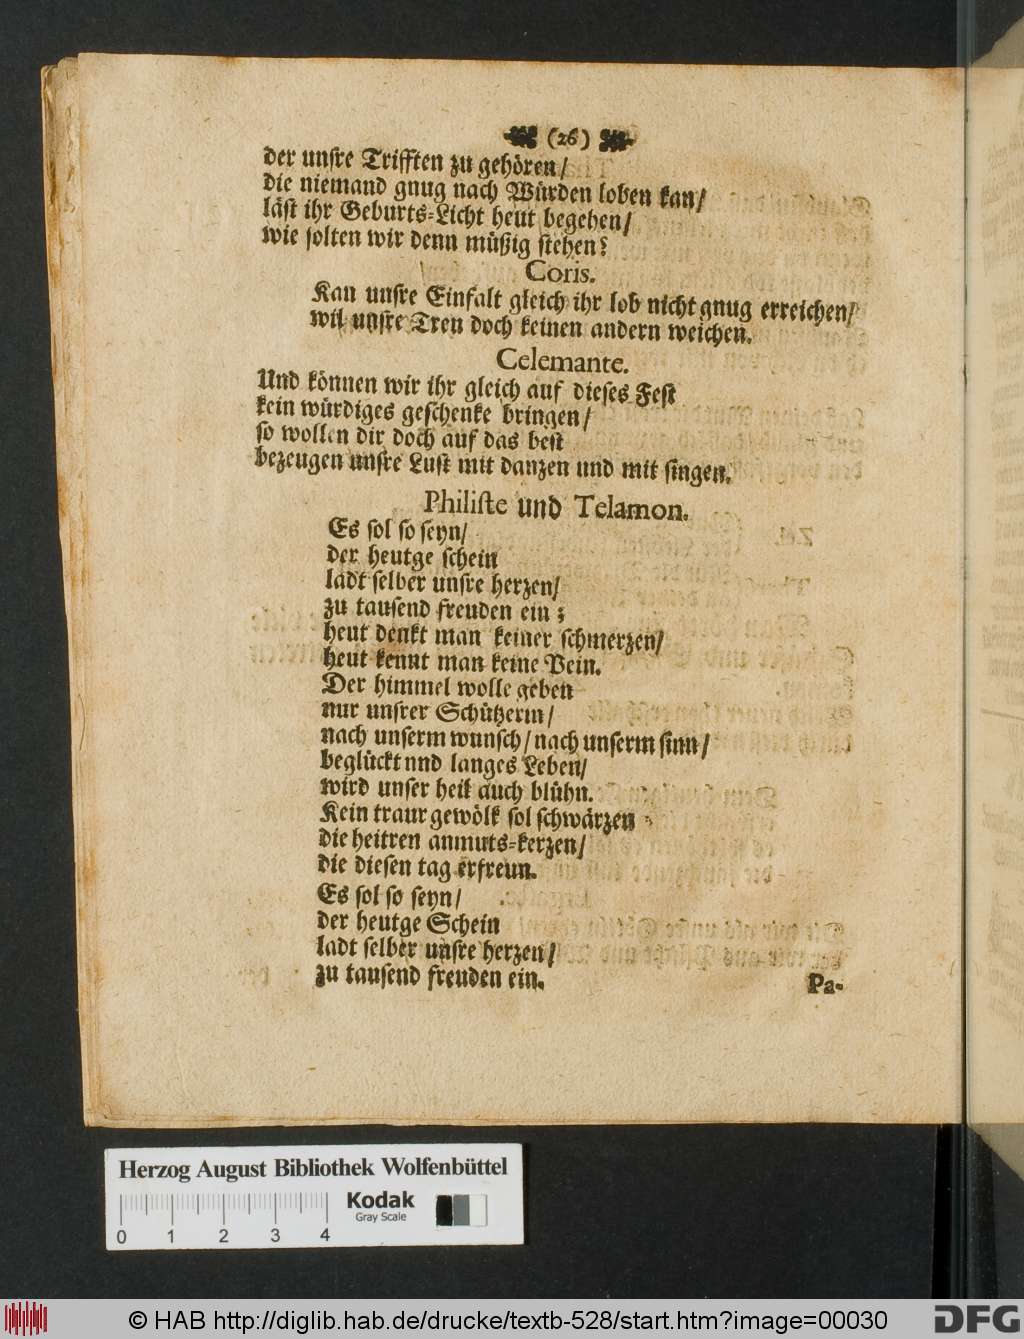 (26)
der unſre Trifften zu gehören/
die niemand gnug nach Würden loben kan/
läſt ihr Geburts-Licht heut begehen/
wie ſolten wir denn müßig ſtehen?
Coris.
Kan unſre Einfalt gleich ihr lob nicht gnug erreichen/
wil unſre Tren doch keinen andern weichen.
Celemante.
Und können wir ihr gleich auf dieſes Feſt
kein würdiges geſchenke bringen/
ſo wollen dir doch auf das beſt
bezeugen unſre Luſt mit danzen und mit ſingen.
Philiſte und Telamon.
Es ſol ſo ſeyn/
der heutge ſchein
ladt ſelber unſre herzen/
zu tauſend freuden ein;
heut denkt man keiner ſchmerzen/
heut kennt man keine Pein.
Der himmel wolle geben
nur unſrer Schützerin/
nach unſerm wunſch/ nach unſerm ſinn/
beglückt nnd langes Leben/
wird unſer heil auch blühn.
Kein traur gewölk ſol ſchwärzen
die heitren anmuts-kerzen/
die dieſen tag erfreun.
Es ſol ſo ſeyn/
der heutge Schein
ladt ſelber unſre herzen/
zu tauſend freuden ein.
Pa-
Herzog August Bibliothek Wolfenbüttel
Kodak
Gray Scale
0 1 2 3 4
© HAB http://diglib.hab.de/drucke/textb-528/start.htm?image=00030
DFG